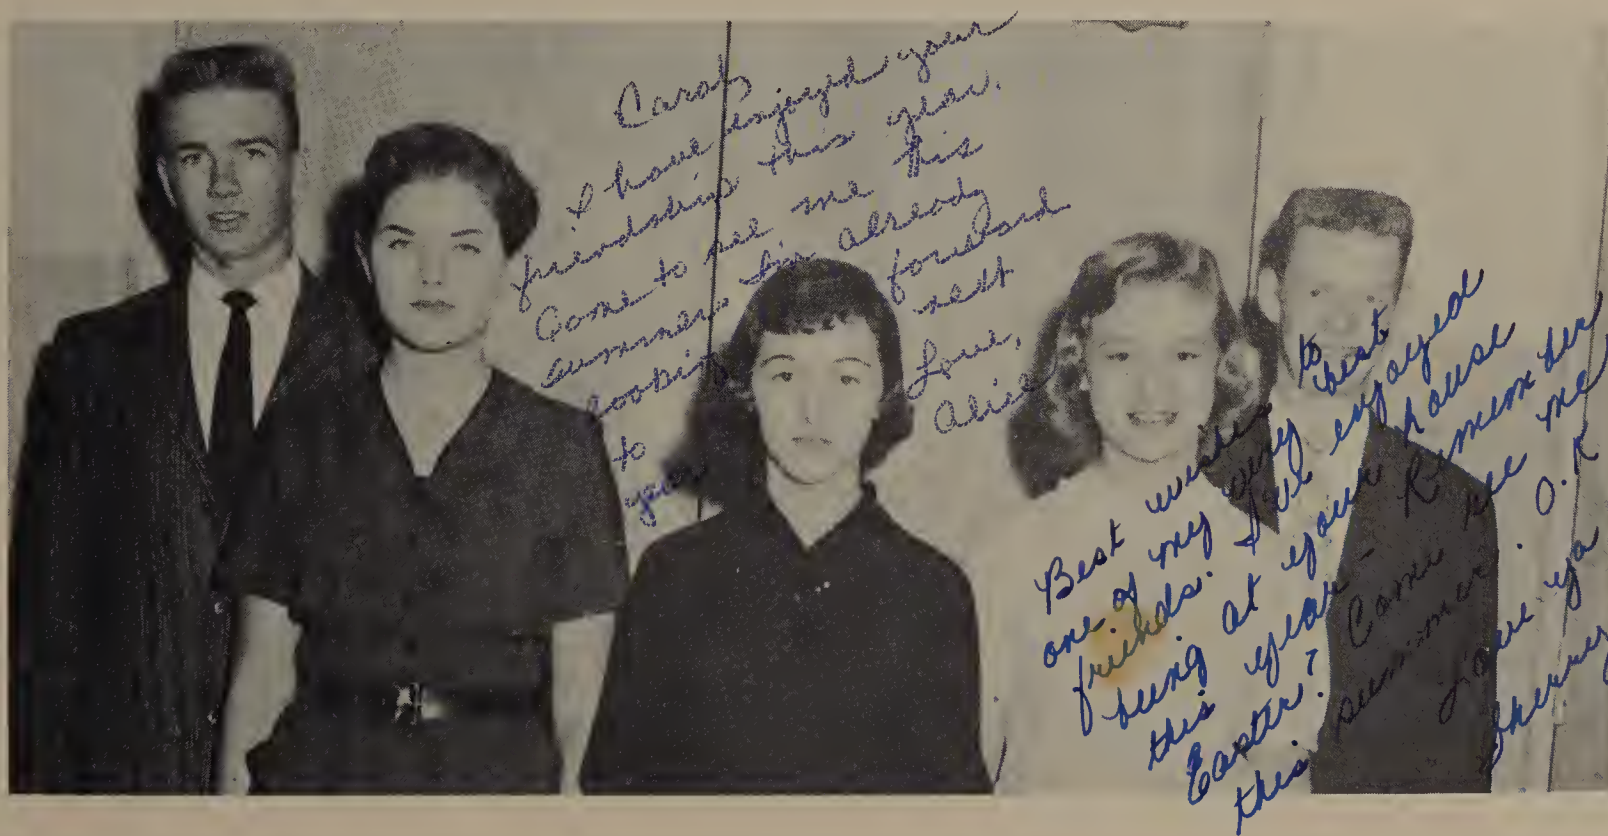 Carol,
I have enjoyed your
friendship this year.
Come to see me this
summer. I'm already
looking forward
to next
year
Love,
Alice
Best wishes to
one of my very best
friends. I've enjoyed
being at your house
this year - Remember
Easter? Come see me
this summer. O.K
Love ya
Sherry